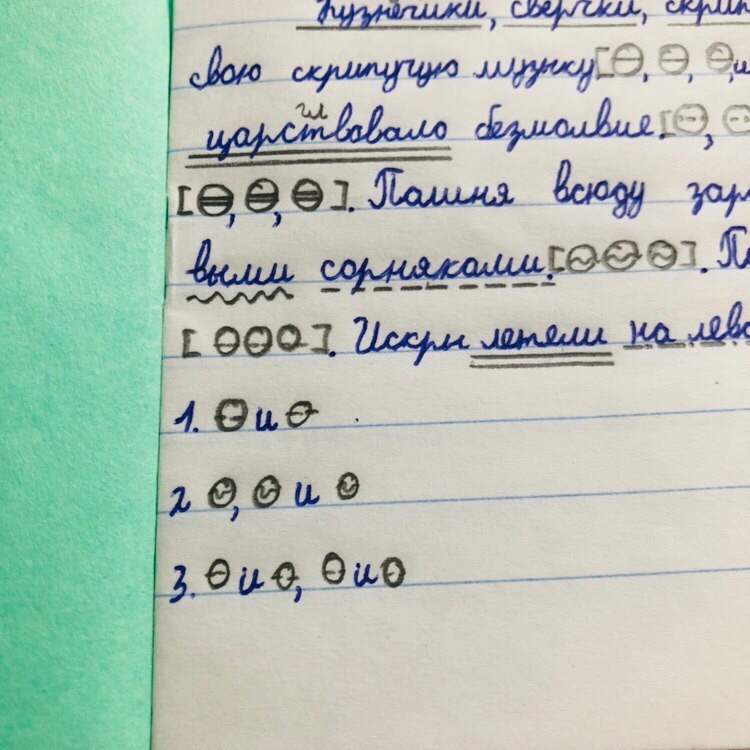 Кузнечики, сверчки,
свою скрипучую музыку [⊖, ⊖, ⊖, и
гл
царствовало безмолвие. [⊖, ⊖
[⊖, ⊖, ⊖]. Полиня всюду
выми сорняками. [⊖⊖⊖].
[⊖⊖⊖]. Искры летели на
1. ⊖ и ⊖
2 ⊖, ⊖ и ⊖
3. ⊖ и ⊖, ⊖ и ⊖